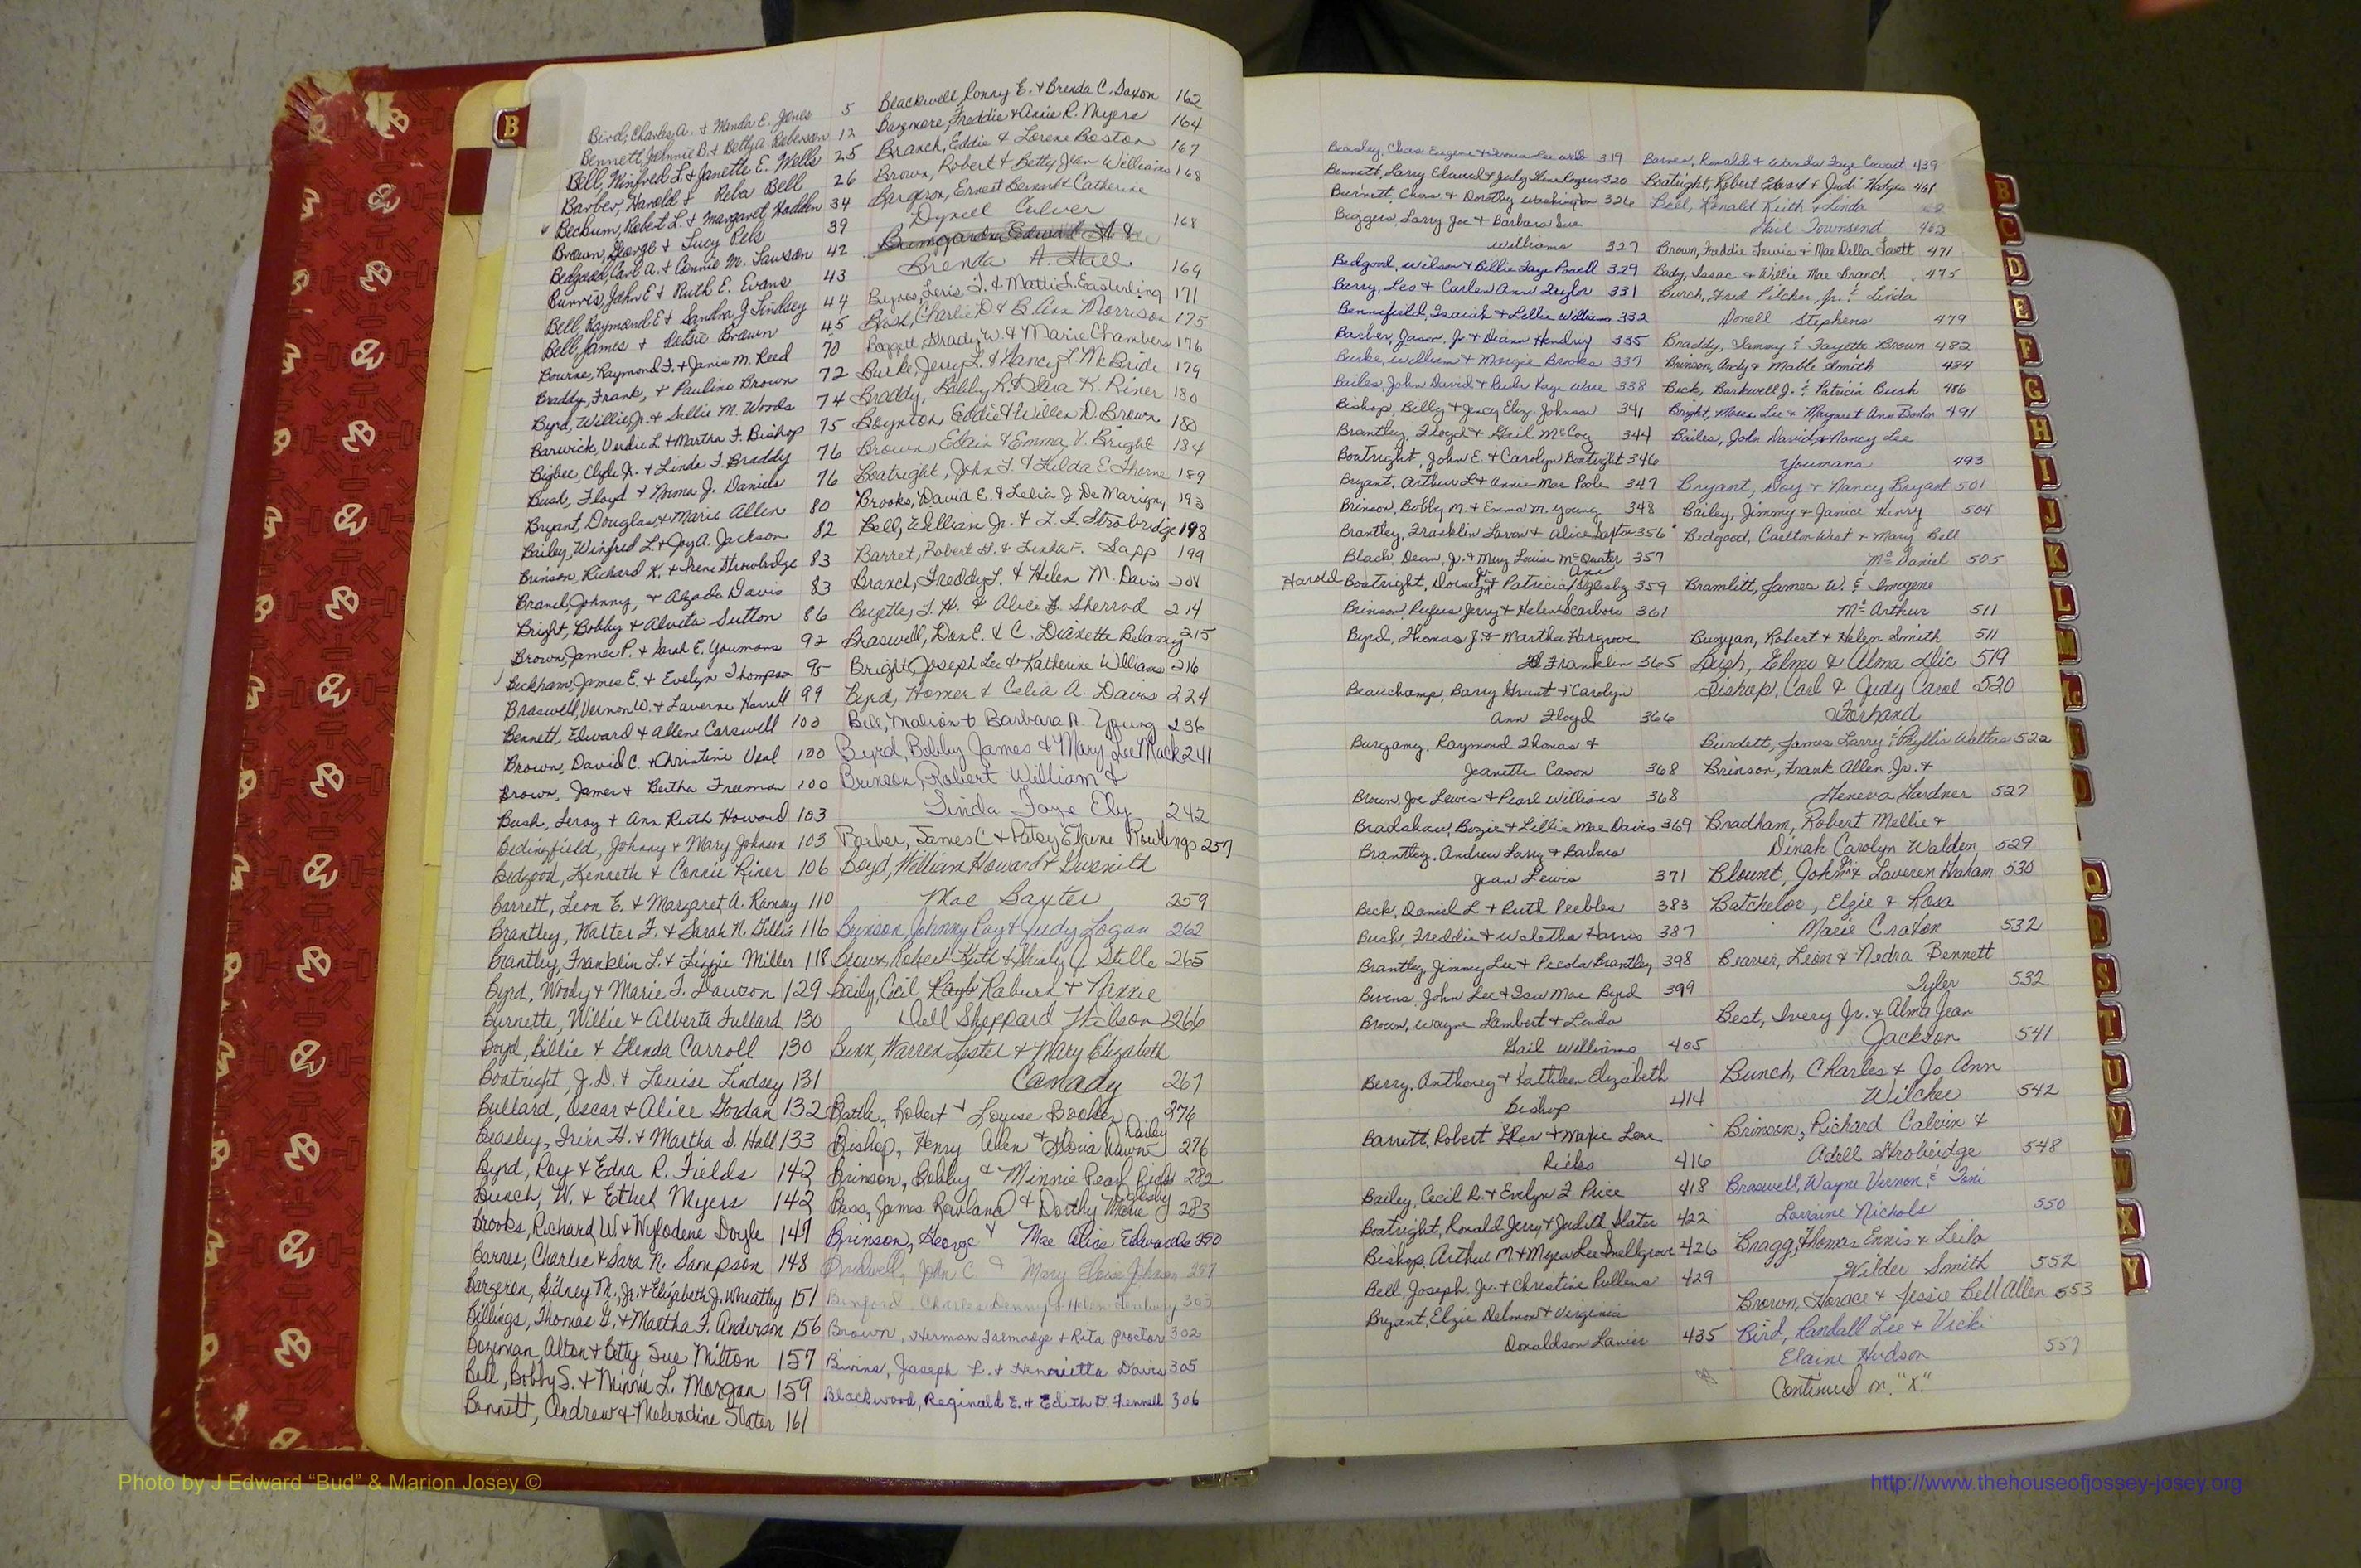 B
Bird, Charles A. & Wanda E. Jones 5
Bennett, Johnnie B. & Betty A. Roberson 12
Bell, Winfred L. & Janette E. Wells 25
Barber, Harold & Reba Bell 26
Beckum, Robert L. & Margaret Hadden 34
Brown, George & Lucy Pels 39
Bedgood, Carl A. & Connie M. Lawson 42
Burris, John E & Ruth E. Evans 43
Bell, Raymond E & Sandra J Lindsey 44
Bell, James & Brown 45
Bourne, Raymond F. & Janis M. Reed 70
Braddy, Frank, & Pauline Brown 72
Byrd, Willie Jr. & Sallie M. Woods 74
Barwick, Verdie L & Martha F. Bishop 75
Bigbee, Clyde Jr. & Linda F. Braddy 76
Bush, Floyd & Norma J. Daniels 76
Bryant, Douglas & Marie Allen 80
Bailey, Winfred L & Joy A. Jackson 82
Brinson, Richard K. & Irene Strowbridge 83
Branch, Johnny, & Alzada Davis 83
Bright, Bobby & Alvita Sutton 86
Brown, James P. & Sarah E. Youmans 92
Beckham, James E. & Evelyn Thompson 95
Braswell, Vernon W. & Laverne Harrell 99
Bennett, Edward & Allene Carswell 100
Brown, David C. & Christine Veal 100
Brown, James & Bertha Freeman 100
Bush, Leroy & Ann Ruth Howard 103
Bedingfield, Johnny & Mary Johnson 103
Bedgood, Kenneth & Connie Riner 106
Barrett, Leon E. & Margaret A. Ramsey 110
Brantley, Walter F. & Sarah N. Gillis 116
Brantley, Franklin L. & Lizzie Miller 118
Byrd, Woody & Marie F. Dawson 129
Burnette, Willie & Alberta Fullard 130
Boyd, Billie & Glenda Carroll 130
Boatright, J.D. & Louise Lindsey 131
Bullard, Oscar & Alice Gordan 132
Beasley, Irvin H. & Martha S. Hall 133
Byrd, Roy & Edna R. Fields 142
Bunch, W. & Ethel Myers 142
Brooks, Richard W. & Wylodene Doyle 147
Barnes, Charles & Sara N. Sampson 148
Bargeron, Sidney M., Jr. & Elizabeth J. Wheatley 151
Billings, Thomas G. & Martha F. Anderson 156
Bozeman, Alton & Betty Sue Milton 157
Bell, Bobby S. & Minnie L. Morgan 159
Bennett, Andrew & Melvadine Slater 161
Blackwell, Ronny E. & Brenda C. Saxon 162
Bazemore, Freddie & Annie R. Myers 164
Branch, Eddie & Lorene Boston 167
Brown, Robert & Betty Jean Williams 168
Bargeron, Ernest Bernard & Catherine
Dyniell Culver 168
Bumgardner Edward A &
Brenda A. Hall 169
Bynes, Leris J. & Matti L. Easterling 171
Bush, Charlie D & B. Ann Morrison 175
Boggett, Grady W. & Marie Chambers 176
Burke, Jerry L. & Nancy L McBride 179
Braddy, Bobby R & Elisa K. Riner 180
Boynton, Eddie & Willen D. Brown 180
Brown, Edain & Emma V. Bright 184
Boatright, John T. & Hilda E Thorne 189
Brooks, David E. & Lelia J De Marigny 193
Bell, William Jr. & L. L. Strobridge 198
Barret, Robert H. & Linda F. Sapp 199
Branch, Freddy L. & Helen M. Davis 204
Boyette, J. H. & Alice F. Sherrod 214
Braswell, Don E. & C. Dianette Belamy 215
Bright, Joseph Lee & Katherine Williams 216
Byrd, Homer & Celia A. Davis 224
Bell, Malion & Barbara A. Young 236
Byrd, Bobby James & Mary Lee Mack 241
Brinson, Robert William &
Linda Faye Ely 242
Barber, James C & Patsy Elaine Rowlings 257
Boyd, William Howard & Gwenith
Mae Baxter 259
Brinson, Johnny Ray & Judy Logan 262
Brown, Robert Keith & Shirley J. Stille 265
Baily, Cecil Rayb Raburn & Nannie
Dell Sheppard Wilson 266
Bunn, Warren Lester & Mary Elizabeth
Canady 267
Battle, Robert & Louise Booker 276
Bishop, Henry Allen & Gloria Dawn Dailey 276
Brinson, Bobby & Minnie Pearl Ricks 282
Bass, James Rowland & Dorthy Marie Oglesby 283
Brinson, George & Mae Alice Edwards 290
Bridwell, John C & Mary Eloise Johnson 297
Binford, Charles Denny & Helen 303
Brown, Herman Talmadge & Rita Proctor 302
Bivins, Joseph L. & Henrietta Davis 305
Blackwood, Reginald E. & Edith D. Fennell 306
Beasley, Chas Eugene & Lee Webb 319
Bennett, Larry Edward & Judy Elaine Rogers 320
Burnett, Chas & Dorothy Washington 326
Biggers, Larry Joe & Barbara Sue
Williams 327
Bedgood, Wilson & Billie Faye Powell 329
Berry, Leo & Curlen Ann Taylor 331
Bennefield, Isaiah & Lillie Williams 332
Barber, Jason, Jr & Diann Hendrix 335
Burke, William & Margie Brooks 337
Bailes, John David & Reda Kaye Ware 338
Bishop, Billy & Jency Eliz. Johnson 341
Brantley, Floyd & Gail McCoy 344
Boatright, John E. & Carolyn Boatright 346
Bryant, Arthur L & Annie Mae Poole 347
Brinson, Bobby M. & Emma M. Young 348
Brantley, Franklin Lavon & Alice Sexton 356
Black, Dean, Jr. & Mary Louise McQuater 357
Harold Boatright, Dorsey Jr & Patricia Ann Oglesby 359
Brinson, Rufus Jerry & Helen Scarboro 361
Byrd, Thomas J. & Martha Hargrove
Franklin 365
Beauchamp, Barry Grant & Carolyn
Ann Floyd 366
Burgamy, Raymond Thomas &
Jeanette Cason 368
Brown, Joe Lewis & Pearl Williams 368
Bradshaw, Bozie & Lillie Mae Davis 369
Brantley, Andrew Larry & Barbara
Jean Lewis 371
Beck, Daniel L. & Ruth Peebles 383
Bush, Freddie & Waletha Harris 387
Brantley, Jimmy Lee & Pecola Brantley 398
Bivens, John Lee & Isu Mae Byrd 399
Brown, Wayne Lambert & Linda
Gail Williams 405
Berry, Anthoney & Kathleen Elizabeth
Bishop 414
Barrett, Robert Glen & Marie Lene
Ricks 416
Bailey, Cecil R. & Evelyn L Price 418
Boatright, Ronald Jerry & Judith Slater 422
Bishop, Arthur M. & Myra Lee Snellgrove 426
Bell, Joseph, Jr. & Christine Pullens 429
Bryant, Elzie Delmon & Virginia
Donaldson Lanier 435
Barnes, Ronald & Wanda Faye Cowart 439
Boatright, Robert Edward & Judi Hodges 461
Bell, Ronald Keith & Linda
Gail Townsend 462
Brown, Freddie Lewis & Mae Della Lovett 471
Body, Issac & Willie Mae Branch 475
Burch, Fred Pilcher, Jr. & Linda
Donell Stephens 479
Braddy, Sammy & Fayette Brown 482
Brinson, Andy & Mable Smith 484
Bick, Barkwell J. & Patricia Bush 486
Bright, Moses Lee & Margaret Ann Boston 491
Bailes, John David & Nancy Lee
Youmans 493
Bryant, Doy & Nancy Bryant 501
Bailey, Jimmy & Janice Henry 504
Bedgood, Carlton West & Mary Bell
McDaniel 505
Bramlitt, James W. & Imogene
McArthur 511
Bunyan, Robert & Helen Smith 511
Bush, Elmo & Alma Dic 519
Bishop, Carl & Judy Carol 520
Forhand
Burdett, James Larry & Phyllis Walters 522
Brinson, Frank Allen Jr. &
Geneva Gardner 527
Bradham, Robert Mellie &
Dinah Carolyn Walden 529
Blount, John Jr. & Laveren Graham 530
Batchelor, Elzie & Rosa
Marie Craton 532
Beaver, Leon & Nedra Bennett
Tyler 532
Best, Ivery Jr. & Alma Jean
Jackson 541
Bunch, Charles & Jo Ann
Wilcher 542
Brinson, Richard Calvin &
Adell Strobridge 548
Braswell, Wayne Vernon & Toni
Lorraine Nichols 550
Bragg, Thomas Ennis & Leila
Wilder Smith 552
Brown, Horace & Jessie Bell Allen 553
Bird, Randall Lee & Vicki
Elaine Hudson 557
Continued on "X."
B
C
D
E
F
G
H
I
J
K
L
M
Q
R
S
T
U
V
W
X
Y
Photo by J Edward “Bud” & Marion Josey ©
http://www.thehouseofjossey-josey.org